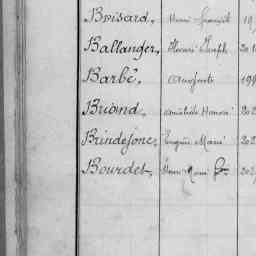 Brisard, Henri François 19
Ballanger, Henri Joseph 20
Barbé, Auguste 199
Briand, Aristide Honoré 202
Brindejonc, Eugène Marie 202
Bourdet, Henri Marie 202